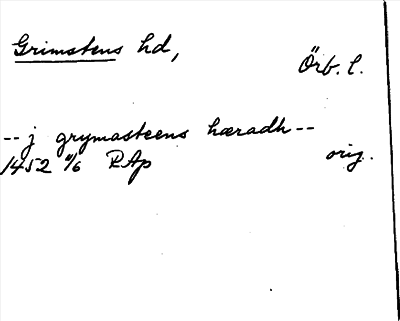 Grimstens hd, Örb. l.
-- j grymasteens hæradh --
1452 11/6 RAp orig.